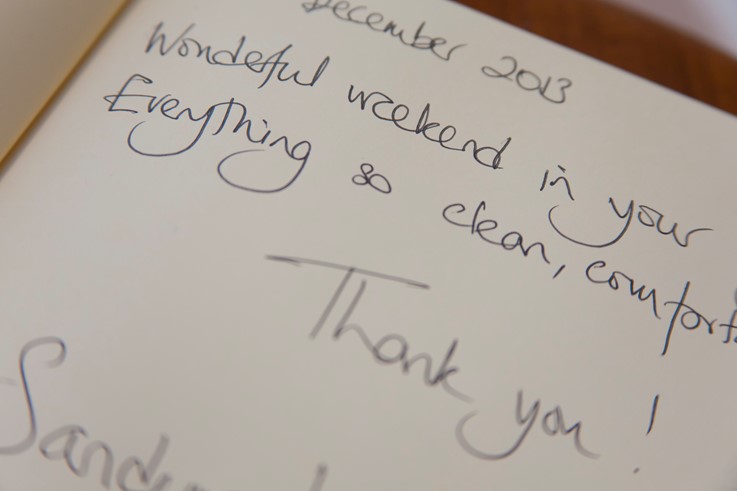 December 2013
Wonderful weekend in your
Everything so clean, comfort
Thank you!